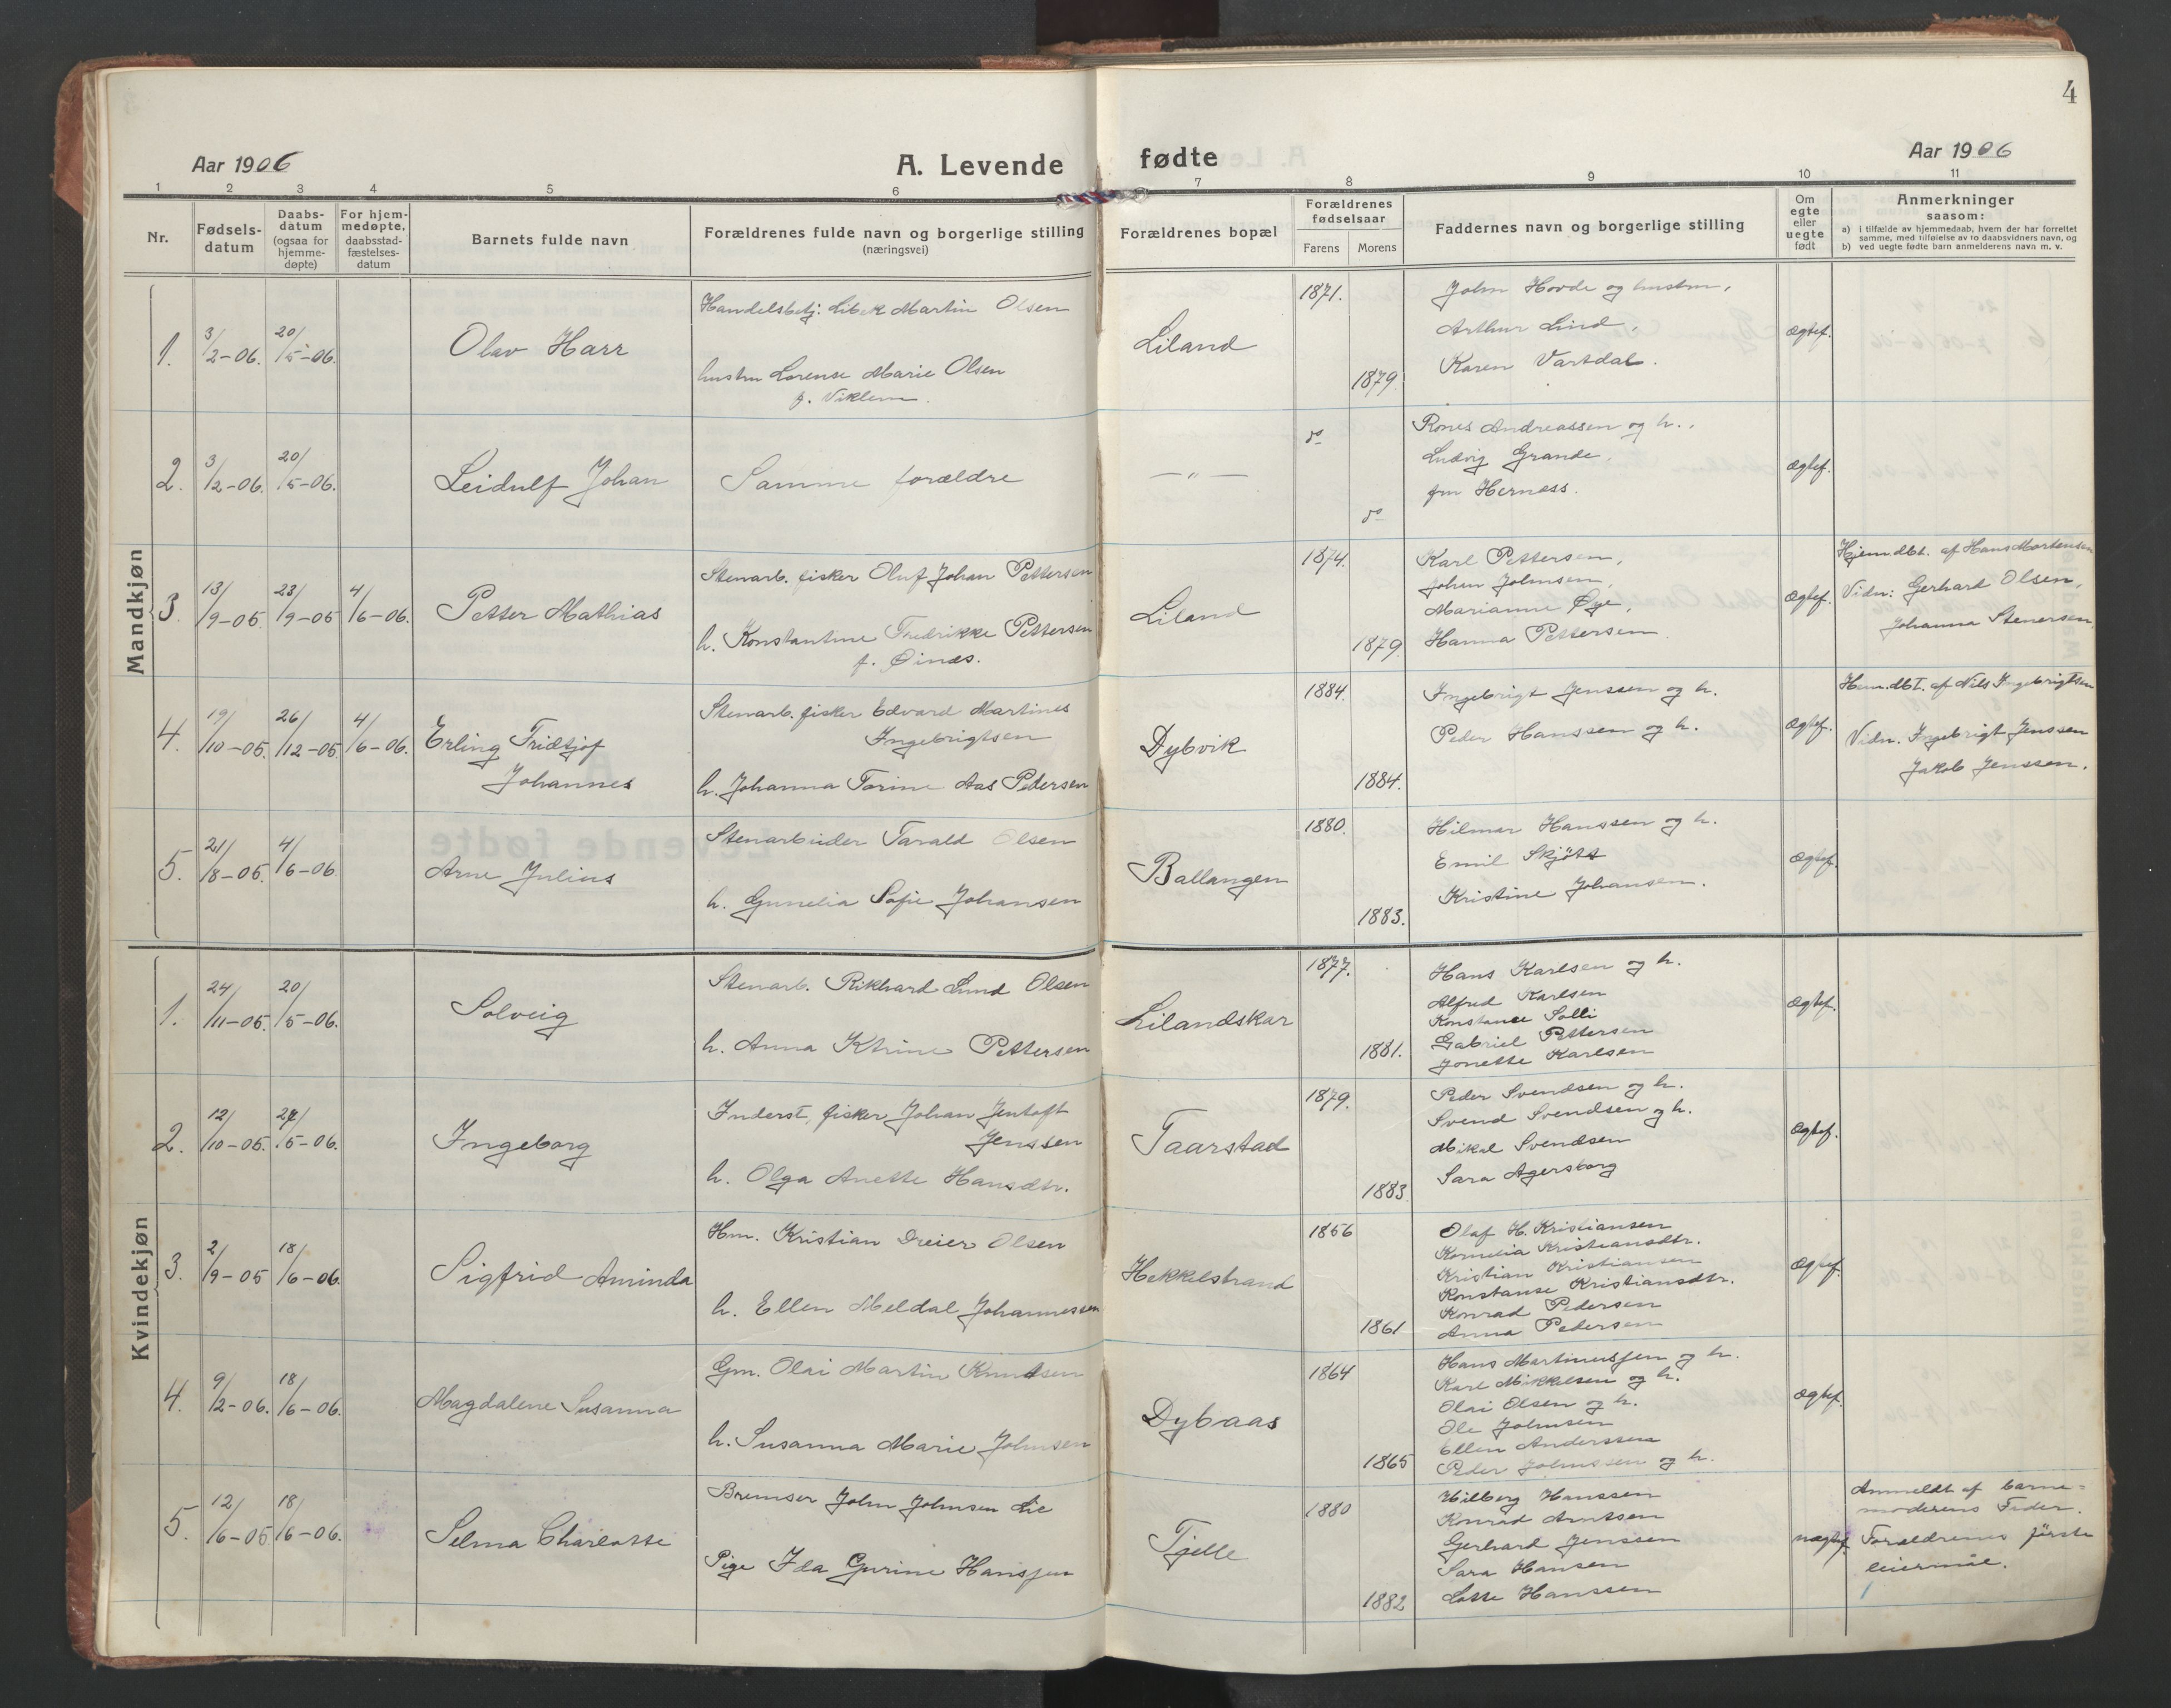 4
Aar 1906
A. Levende fødte
Aar 1906
1 2 3 4 5 6 7 8 9 10 11
Nr.
Fødsels-
datum
Daabs-
datum
(ogsaa for
hjemme-
døpte)
For hjem-
medøpte,
daabsstad-
fæstelses-
datum
Barnets fulde navn
Forældrenes fulde navn og borgerlige stilling
(næringsvei)
Forældrenes bopæl
Forældrenes
fødselsaar
Farens Morens
Faddernes navn og borgerlige stilling
Om
egte
eller
uegte
født
Anmerkninger
saasom:
a) i tilfælde av hjemmedaab, hvem der har forrettet
samme, med tilføielse av to daabsvidners navn, og
b) ved uegte fødte barn anmelderens navn m. v.
Mandkjøn
1. 3/2-06. 20/5-06.
Olav Harr
Handelsbetj: Libek Martin Olsen
hustru Lorense Marie Olsen
f. Viklem.
Liland
1871.
1879.
John Hovde og hustru,
Arthur Lind,
Karen Vartdal.
ægtef.
2. 3/2-06. 20/5-06.
Leidulf Johan
Samme forældre
— " —
do
do
Rones Andreassen og h.,
Ludvig Grande,
fru Hernæss.
ægtef.
3. 13/9-05. 23/9-05 4/6-06.
Petter Mathias
Stenarb. fisker Oluf Johan Pettersen
h. Konstantine Fredrikke Pettersen
f. Øinæs.
Liland
1874.
1879.
Karl Pettersen,
Johan Johnsen,
Marianne Øye,
Hanna Pettersen.
ægtef.
Hjem.dbt. af Hans Mortensen
Vidn: Gerhard Olsen,
Johanna Stenersen.
4. 19/10-05. 26/12-05 4/6-06.
Erling Fridtjof
Johannes
Stenarb. fisker Edvard Martines
Ingebrigtsen
h. Johanna Torine Aas Pedersen
Dybvik
1884.
1884.
Ingebrigt Jenssen og h.
Peder Hanssen og h.
ægtef.
Hem.dbt. af Nils Ingebrigtsen
Vidn. Ingebrigt Jenssen
Jakob Jenssen.
5. 21/8-05. 4/6-06
Arne Julius
Stenarbeider Tarald Olsen
h. Gunelia Sofie Johansen
Ballangen
1880.
1883.
Hilmar Hanssen og h.
Emil Skjött
Kristine Johansen.
ægtef.
Kvindekjøn
1. 24/11-05. 20/5-06.
Solveig
Stenarb. Rikhard Lund Olsen
h. Anna Ktrine Pettersen
Lilandskar
1877.
1881.
Hans Karlsen og h.
Alfred Karlsen
Konstance Solli
Gabriel Pettersen
Jonette Karlsen
ægtef.
2. 12/10-05. 24/5-06.
Ingeborg
Inderst, fisker, Johan Jentoft
Jenssen
h. Olga Anette Hansdtr.
Taarstad
1879.
1883.
Peder Svendsen og h.
Svend Svendsen og h.
Mikal Svendsen
Sara Agersborg
ægtef.
3. 2/9-05 18/6-06.
Sigfrid Aminda
Hm. Kristian Dreier Olsen
h. Ellen Meldal Johannessen
Hekkelstrand
1856
1861
Olaf H. Kristiansen
Kornelia Kristiansdtr.
Kristian Kristiansen
Konstanse Kristiansdtr.
Konrad Pedersen
Anna Pedersen
ægtef.
4. 9/2-06. 18/6-06.
Magdalene Susanna
Gm. Olai Martin Knudsen
h. Susanna Marie Johnsen
Dybaas
1864
1865
Hans Martinussen og h.
Karl Mikkelsen og h.
Olai Olsen og h.
Ole Johnsen
Ellen Anderssen
Peder Johnssen og h.
ægtef.
5. 12/6-05 18/6-06.
Selma Charlotte
Bremser John Johnsen Lie
Pige Ida Gurine Hanssen
Tjelle
1880
1882
Hilberg Hanssen
Konrad Arntsen
Gerhard Jenssen
Sara Hansen
Lotte Hanssen
uægtef.
Anmeldt af barne-
moderens Fader.
Forældrenes første
leiermål.